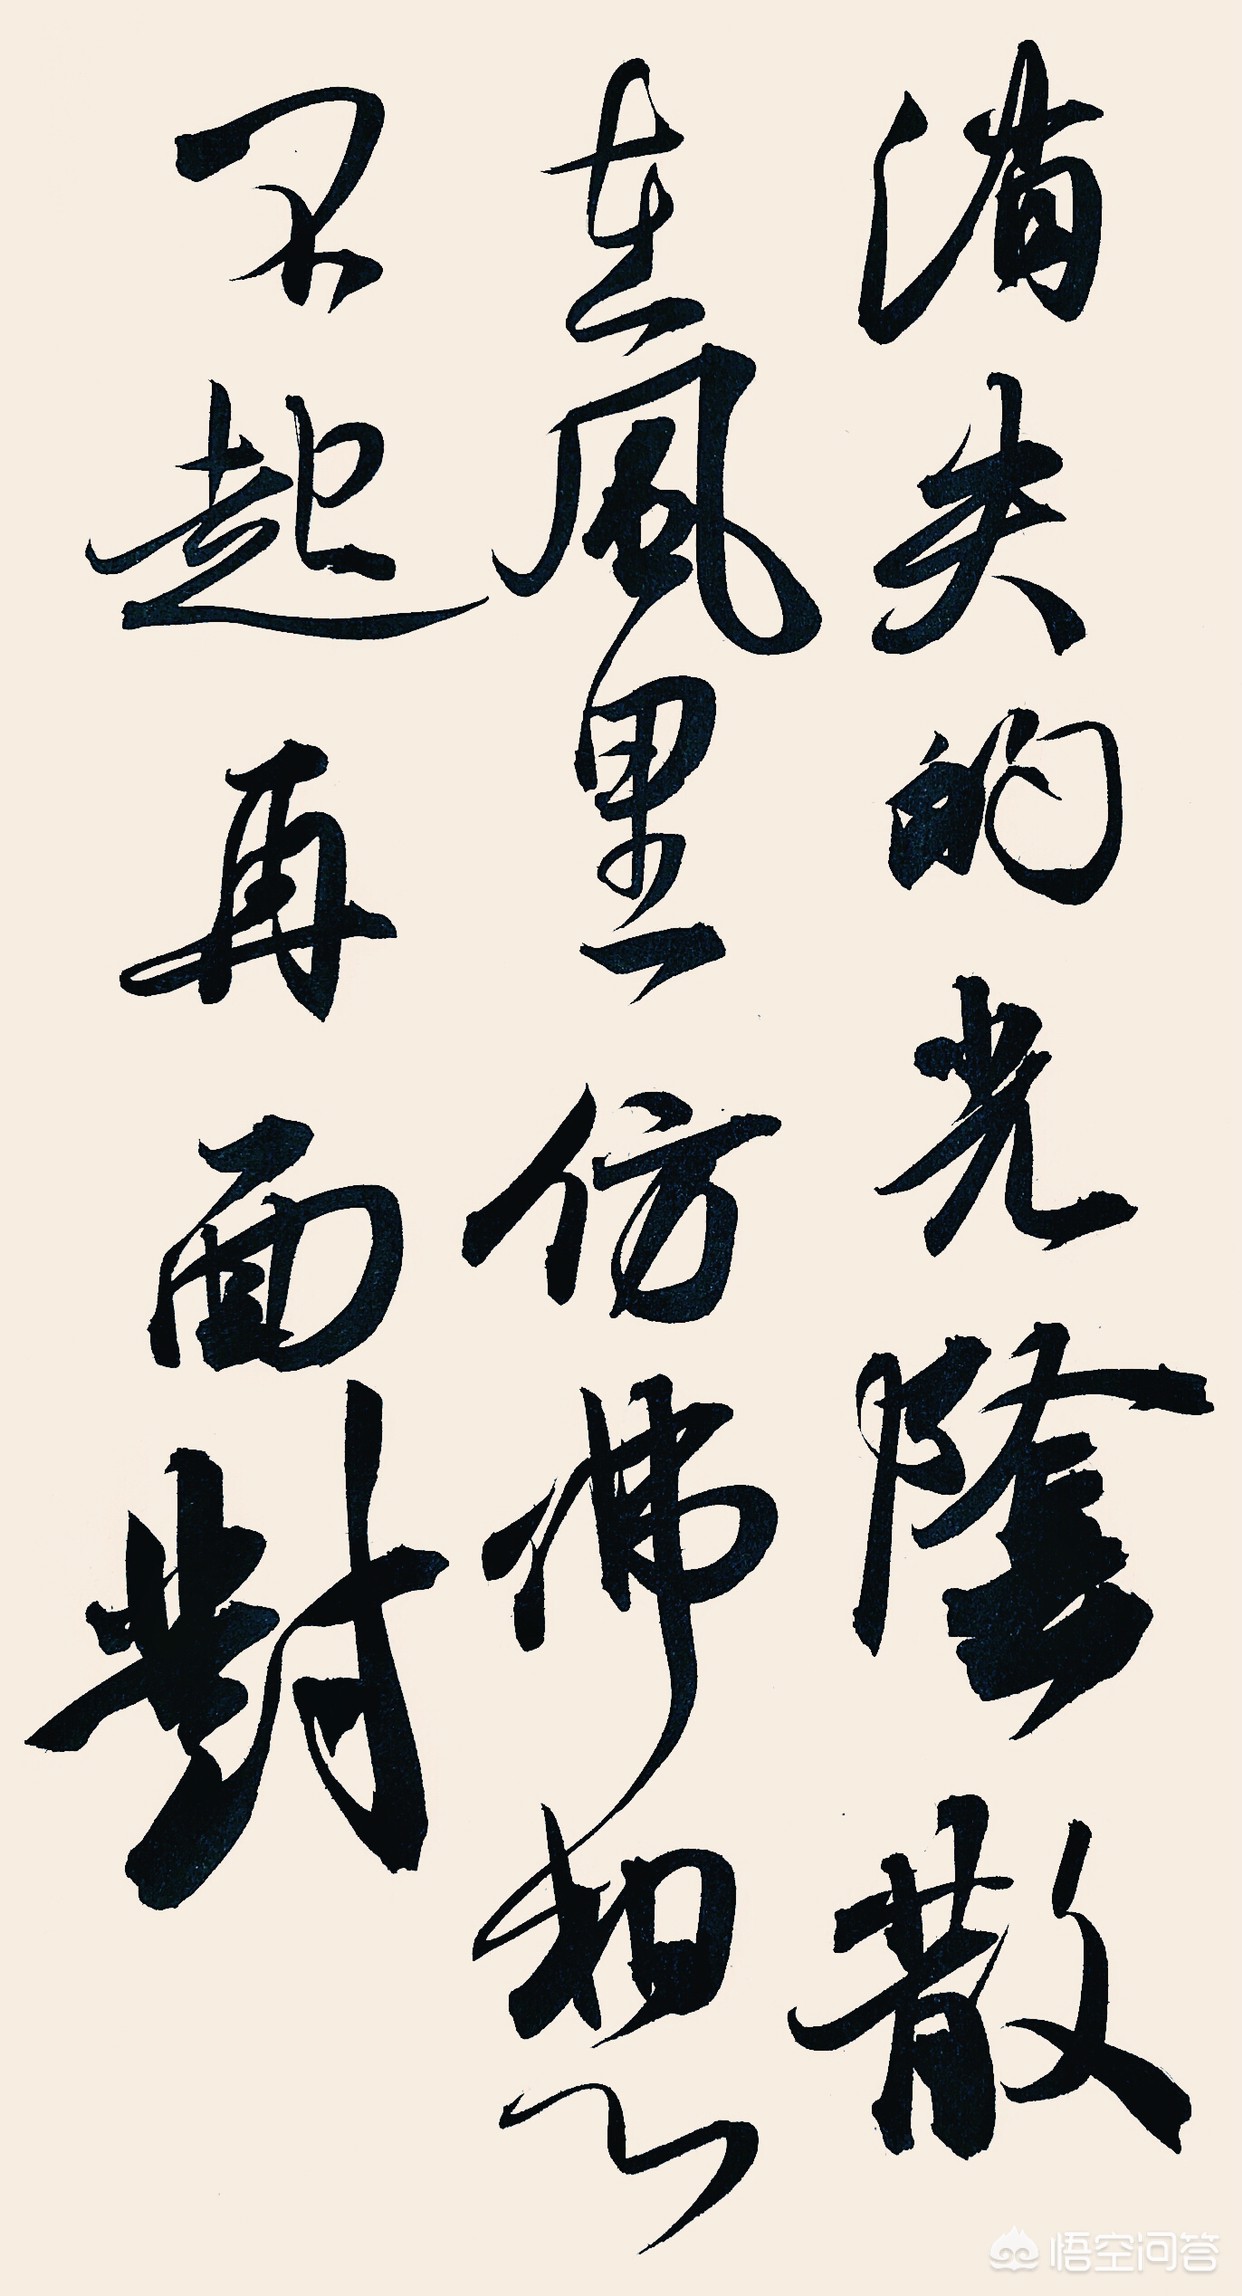 消失的光陰散
在風里仿佛想
不起再面對
悟空问答